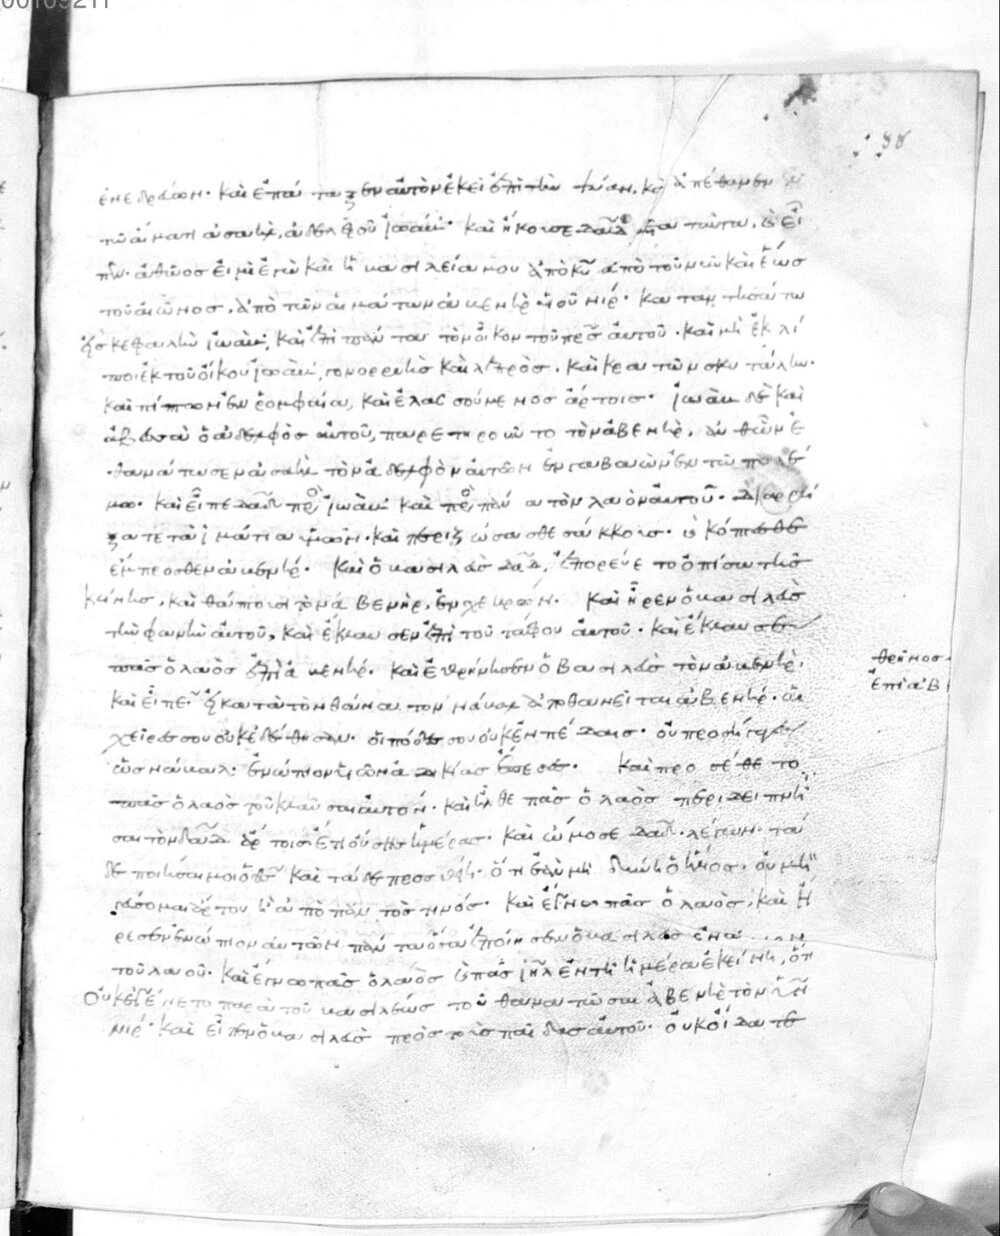 ἐνεδρεύων· καὶ ἐπάταξεν αὐτὸν ἐκεῖ ἐπὶ τὴν ψύαν, καὶ ἀπέθανεν ἐν
τῷ αἵματι ἀσαὴλ, ἀδελφοῦ ἰωάβ· καὶ ἤκουσε δαδ μετὰ ταῦτα, καὶ εἶ
πεν· ἀθῶος εἰμὶ ἐγὼ καὶ ἡ βασιλεία μου ἀπὸ κυ ἀπὸ τοῦ νῦν καὶ ἕως
τοῦ αἰῶνος, ἀπὸ τῶν αἱμάτων ἀβενὴρ υἱοῦ νίρ· καταντησάτω
σαν ἐπὶ κεφαλὴν ἰωὰβ, καὶ ἐπὶ πάντα τὸν οἶκον τοῦ πρς αὐτοῦ· καὶ μὴ ἐκλί
ποι ἐκ τοῦ οἴκου ἰωὰβ, γονορρυὴς καὶ λεπρὸς, καὶ κρατῶν σκυτάλην·
καὶ πίπτων ἐν ῥομφαίᾳ, καὶ ἐλασσούμενος ἄρτοις· ἰωὰβ δὲ καὶ
ἀβεσσὰ ὁ ἀδελφὸς αὐτοῦ, παρετηροῦντο τὸν ἀβενὴρ, ἀνθ' ὧν ἐ
θανάτωσεν ἀσαὴλ τὸν ἀδελφὸν αὐτῶν ἐν γαβαὼν ἐν τῷ πολέ
μῳ· καὶ εἶπε δαδ πρὸς ἰωὰβ καὶ πρὸς πάντα τὸν λαὸν αὐτοῦ· διαρρή
ξατε τὰ ἱμάτια ὑμῶν· καὶ περιζώσασθε σάκκοις· καὶ κόπτεσθε
ἔμπροσθεν ἀβενήρ· καὶ ὁ βασιλεὺς δαδ, ἐπορεύετο ὀπίσω τῆς
κλίνης, καὶ θάπτουσι τὸν ἀβενὴρ, ἐν χεβρών· καὶ ἦρεν ὁ βασιλεὺς
τὴν φωνὴν αὐτοῦ, καὶ ἔκλαυσεν ἐπὶ τοῦ τάφου αὐτοῦ· καὶ ἔκλαυσε
πᾶς ὁ λαὸς ἐπὶ ἀβενήρ· καὶ ἐθρήνησεν ὁ βασιλεὺς τὸν ἀβενὴρ,
καὶ εἶπε· εἰ κατὰ τὸν θάνατον νάβαλ ἀποθανεῖται ἀβενήρ· αἱ
χεῖρές σου οὐκ ἐδέθησαν· οἱ πόδες σου οὐκ ἐν πέδαις· οὐ προσήγαγεν
ὡς νάβαλ· ἐνώπιον υἱῶν ἀδικίας ἔπεσες· καὶ προσέθετο
πᾶς ὁ λαὸς τοῦ κλαῦσαι αὐτόν· καὶ ἦλθε πᾶς ὁ λαὸς περιδειπνῆ
σαι τὸν δαδ ἄρτοις ἔτι οὔσης ἡμέρας· καὶ ὤμοσε δαδ λέγων· τάδε
δε ποιήσαι μοι ὁ θς καὶ τάδε προσθείη· ὅτι ἐὰν μὴ δύνῃ ὁ ἥλιος, οὐ μὴ
γεύσομαι ἄρτου ἢ ἀπὸ παντός τινος· καὶ ἔγνω πᾶς ὁ λαὸς, καὶ ἤ
ρεσεν ἐνώπιον αὐτῶν πάντα ὅσα ἐποίησεν ὁ βασιλεὺς ἐνώ
τοῦ λαοῦ· καὶ ἔγνω πᾶς ὁ λαὸς καὶ πᾶς ιηλ ἐν τῇ ἡμέρᾳ ἐκείνῃ, ὅτι
οὐκ ἐγένετο παρὰ τοῦ βασιλέως τοῦ θανατῶσαι ἀβενὴρ τὸν υἱὸν
νίρ· καὶ εἶπεν ὁ βασιλεὺς πρὸς τοὺς παῖδας αὐτοῦ· οὐκ οἴδατε
θρῆνος
ἐπὶ ἀβ